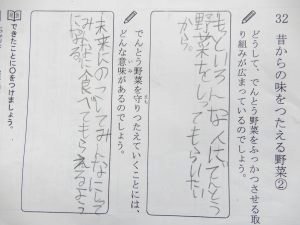 32 昔からの味をつたえる野菜②
どうして、でんとう野菜をふっかつさせる取
り組みが広まっているのでしょう。
もっといろんな人にでんとう
野菜をしってもらいたい
から。
でんとう野菜を守りつたえていくことには、
まも
どんな意味があるのでしょう。
いみ
未来にのこしてみんなにして
みんなに食べてもらえるよう
になる。
できたことに○をつけましょう。